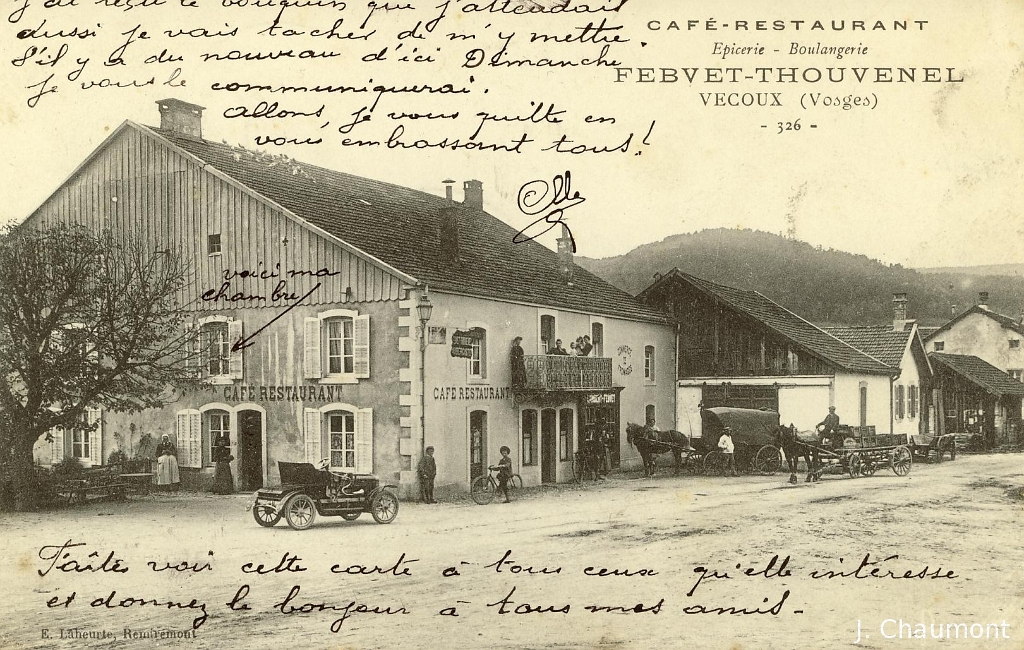 j'ai reçu le bouquin que j'attendais
aussi je vais tacher de m'y mettre.
S'il y a du nouveau d'ici Dimanche
je vous le communiquerai.
allons, je vous quitte en
vous embrassant tous!
CAFÉ-RESTAURANT
Epicerie - Boulangerie
FEBVET-THOUVENEL
VECOUX (Vosges)
- 326 -
voici ma
chambre
CAFÉ RESTAURANT
CAFÉ RESTAURANT
Faites voir cette carte à tous ceux qu'elle intéresse
et donnez le bonjour à tous mes amis-
E. Laheurte, Remiremont
J. Chaumont